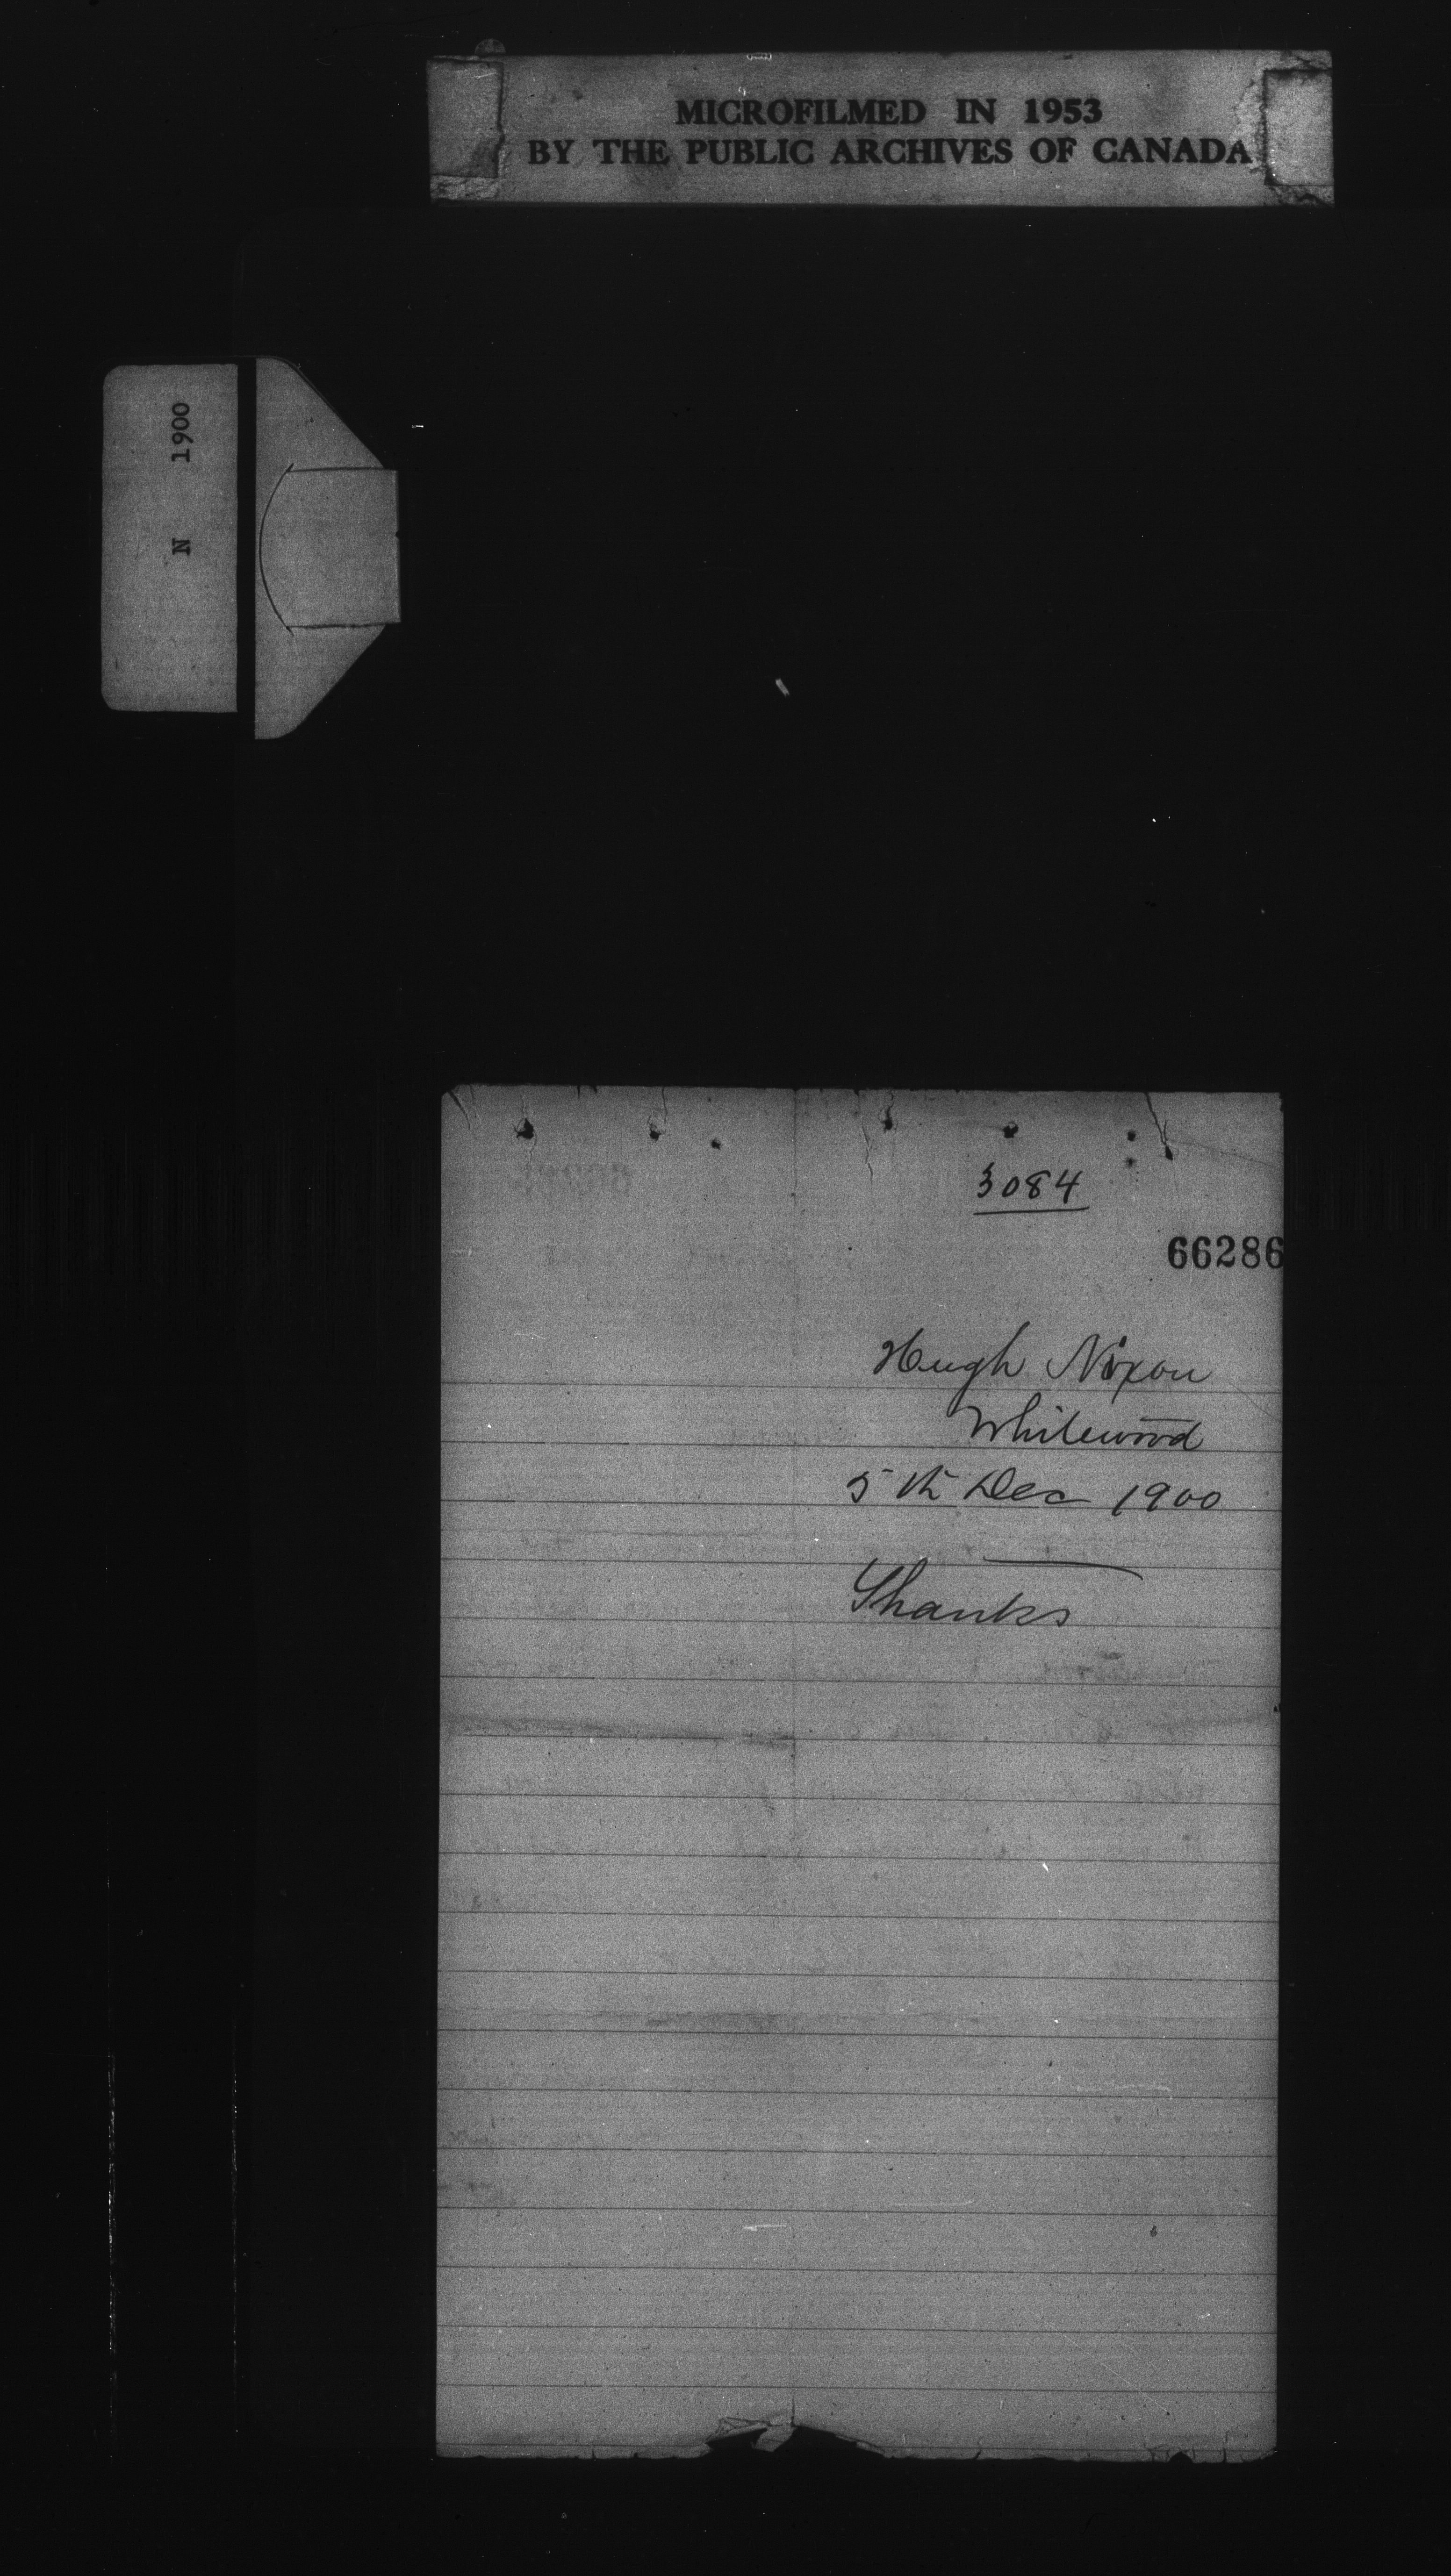 MICROFILMED IN 1953
BY THE PUBLIC ARCHIVES OF CANADA
N 1900
3084
66286
Hugh Nixon
Whitewood
5th Dec 1900
Thanks